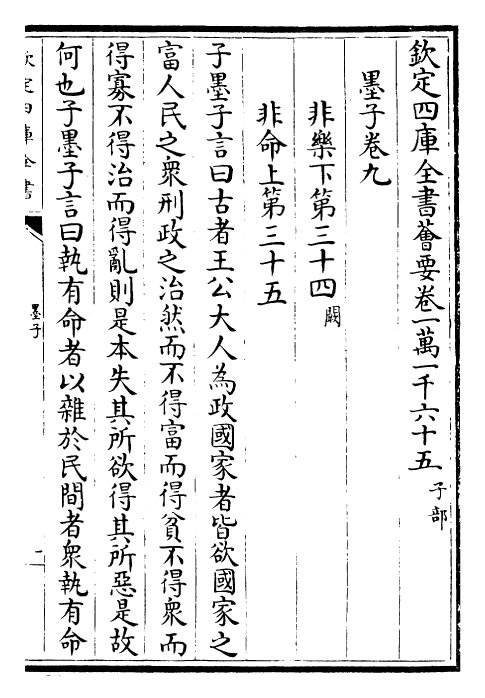 欽定四庫全書薈要卷一萬一千六十五 子部
墨子卷九
非樂下第三十四 闕
非命上第三十五
子墨子言曰古者王公大人為政國家者皆欲國家之
富人民之衆刑政之治然而不得富而得貧不得衆而
得寡不得治而得亂則是本失其所欲得其所惡是故
何也子墨子言曰執有命者以雜於民間者衆執有命
欽定四庫全書
墨子